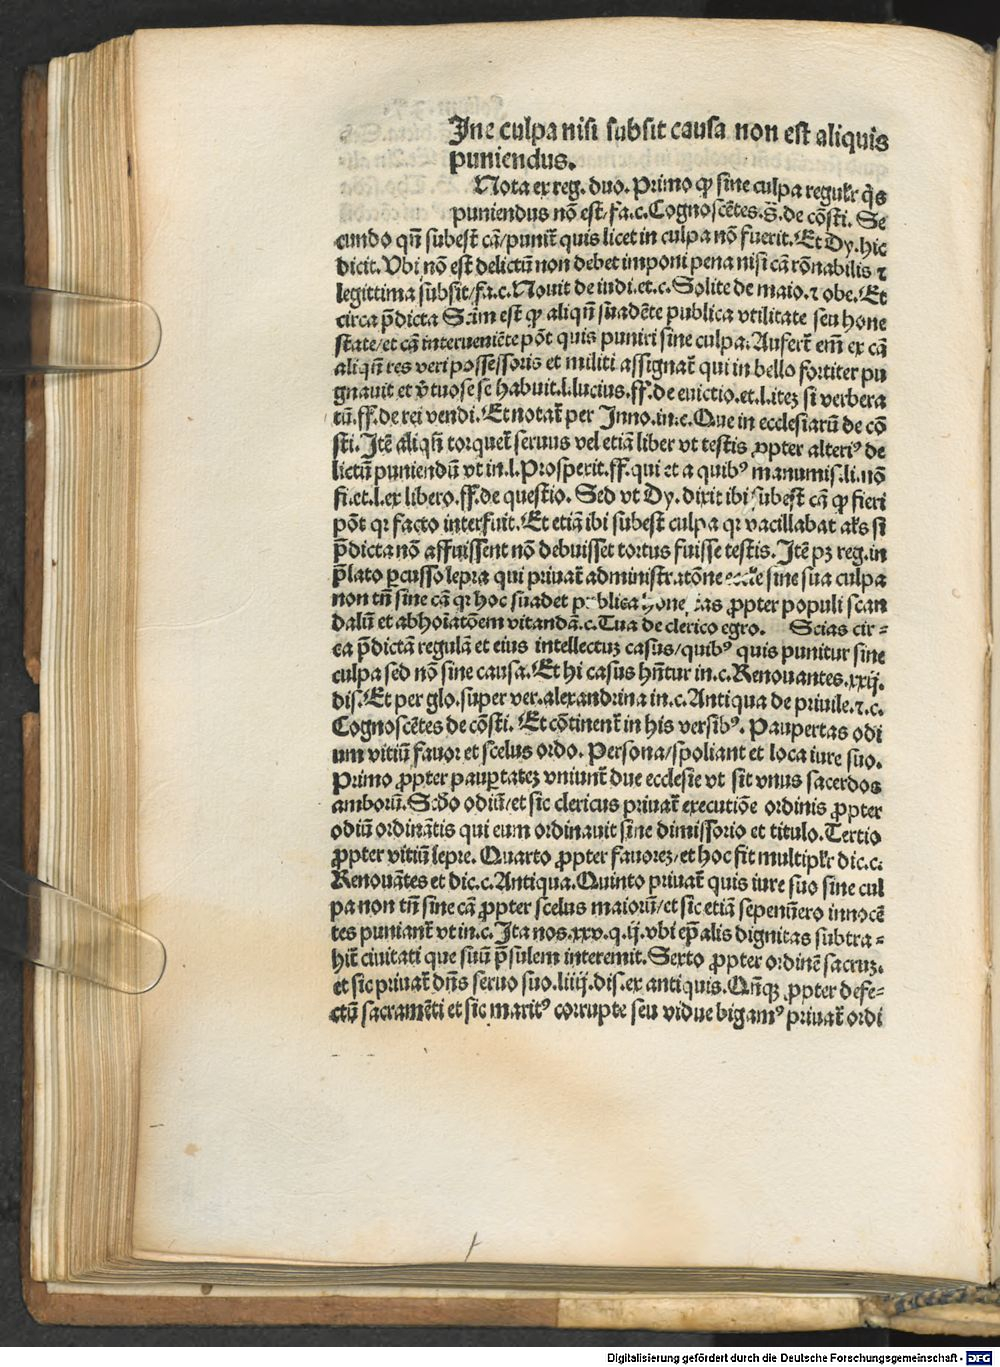 Ine culpa nisi subsit causa non est aliquis
puniendus.
Nota ex reg. duo. Primo ꝙ sine culpa regulr̃ q̃s
puniendus nõ est/fa.c. Cognoscẽtes.s̃. de cõsti. Se
cundo qñ subest cã/punit̃ quis licet in culpa nõ fuerit. Et Dy. hic
dicit. Vbi nõ est delictũ non debet imponi pena nisi cã rõnabilis ⁊
legittima subsit/fa.c. Nouit de iudi. et.c. Solite de maio. ⁊ obe. Et
circa p̃dicta Sciẽm est ꝙ aliqñ suadẽte publica vtilitate seu hone
state/et cã interueniẽte põt quis puniri sine culpa. Aufert̃ em̃ ex cã
aliqñ res veri possessoris et militi assignat̃ qui in bello fortiter pu
gnauit et v̓tuose se habuit.l. lucius.ff. de euictio. et.l. itez si verbera
tũ.ff. de rei vendi. Et notat̃ per Inno. in.c. Que in ecclesiarũ de cõ
sti. Itẽ aliqñ torquet̃ seruus vel etiã liber vt testis ꝓpter alteriꝰ de
lictũ puniendũ vt in.l. Prosperit.ff. qui et a quibꝰ manumis. li. nõ
fi. et.l. ex libero.ff. de questio. Sed vt Dy. dixit ibi subest cã ꝙ fieri
põt qꝛ facto interfuit. Et etiã ibi subest culpa qꝛ vacillabat al̓s si
p̃dicta nõ affuissent nõ debuisset tortus fuisse testis. Itẽ pꝫ reg. in
p̃lato ꝑcusso lepra qui priuat̃ administratõne sine sua culpa
non tñ sine cã qꝛ hoc suadet publica ꝓpter populi scan
dalũ et abhoiatõem vitandã.c. Tua de clerico egro. Scias cir-
ca p̃dictã regulã et eius intellectuz casus/quibꝰ quis punitur sine
culpa sed nõ sine causa. Et hi casus hñtur in.c. Renouantes.xxij.
dis. Et per glo. super ver. alexandrina in.c. Antiqua de priuile. ⁊.c.
Cognoscẽtes de cõsti. Et cõtinent̃ in his versibꝰ. Paupertas odi
um vitiũ fauor et scelus ordo. Persona/spoliant et loca iure suo.
Primo ꝓpter pauꝑtatez vniunt̃ due ecclesie vt sit vnus sacerdos
amborũ. Scdo odiũ/et sic clericus priuat̃ executiõe ordinis ꝓpter
odiũ ordinãtis qui eum ordinauit sine dimissorio et titulo. Tertio
ꝓpter vitiũ lepre. Quarto ꝓpter fauorez/et hoc fit multiplr̃ dic.c.
Renouãtes et dic.c. Antiqua. Quinto priuat̃ quis iure suo sine cul
pa non tñ sine cã ꝓpter scelus maiorũ/et sic etiã sepenũero innocẽ
tes puniant̃ vt in.c. Ita nos.xxv.q.ij. vbi ep̃alis dignitas subtra-
hit̃ ciuitati que suũ p̃sulem interemit. Sexto ꝓpter ordinẽ sacruz.
et sic priuat̃ dñs seruo suo.liiij. dis. ex antiquis. Qñqꝫ ꝓpter defe-
ctũ sacramẽti et sic maritꝰ corrupte seu vidue bigamꝰ priuat̃ ordi
Digitalisierung gefördert durch die Deutsche Forschungsgemeinschaft - DFG